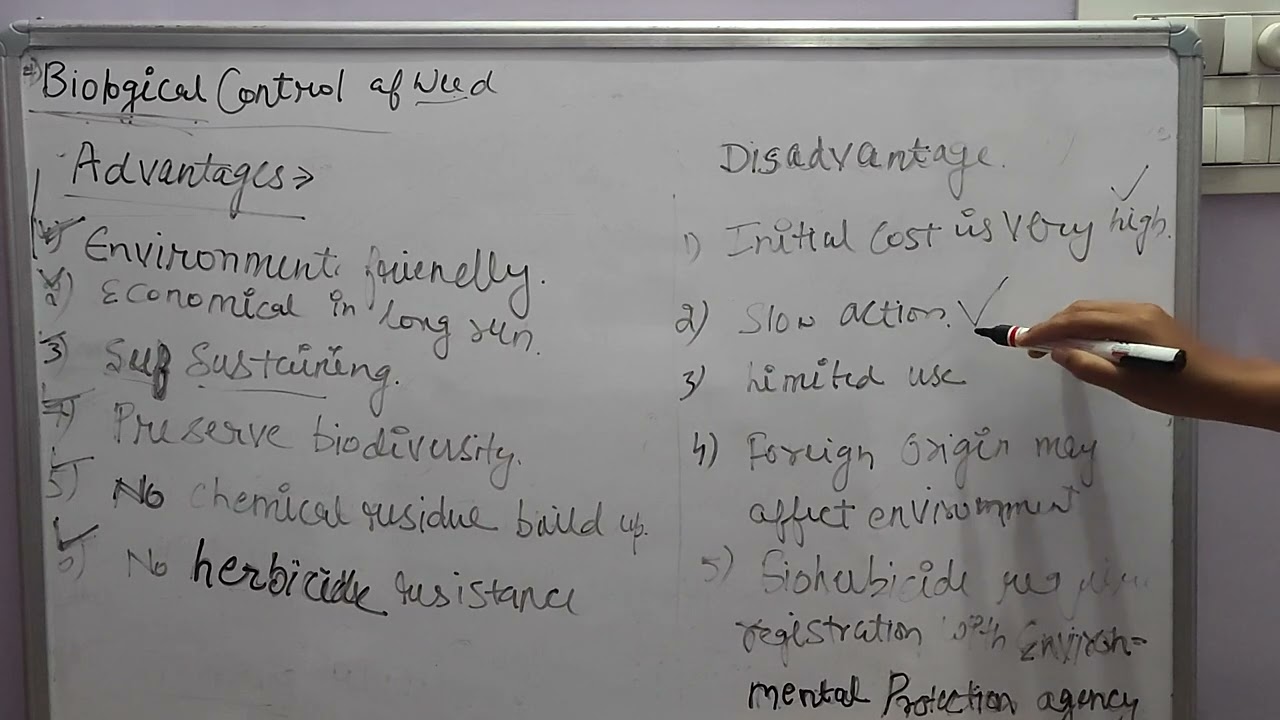 Biological Control of Weed
Advantages
Environment friendly.
2) Economical in long run.
3) Self Sustaining.
4) Preserve biodiversity.
5) No chemical residue build up.
6) No herbicide resistance
Disadvantage.
1) Initial Cost is very high.
2) Slow action.
3) Limited use
4) Foreign Origin may
affect environment
5) Bioherbicide require
registration with Environ-
mental Protection agency